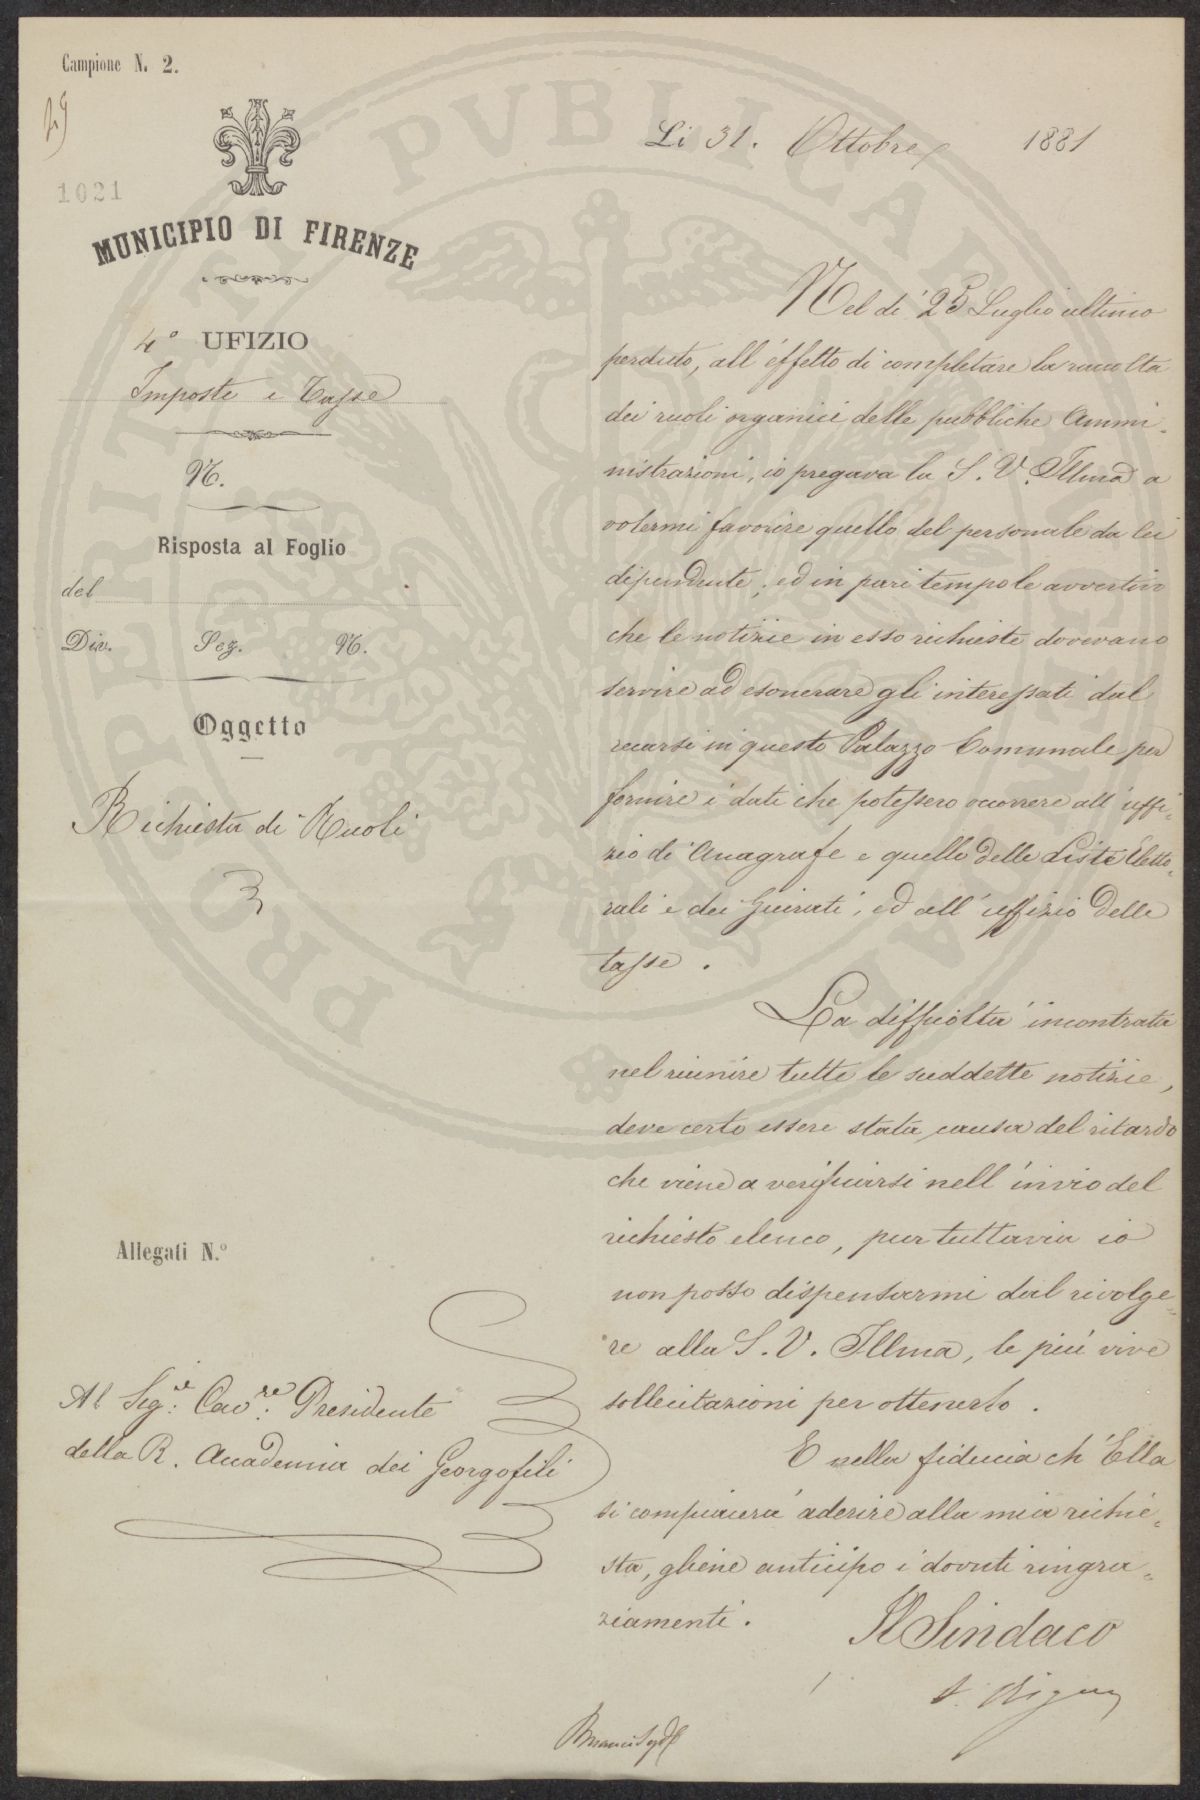 Campione N. 2.
29
1021
MUNICIPIO DI FIRENZE
4.° UFIZIO
Imposte e Tasse
N.
Risposta al Foglio
del
Div. Sez. N.
Oggetto
Richiesta di Ruoli
Allegati N.°
Al Sig.re Cav.re Presidente
della R. Accademia dei Georgofili
Li 31. Ottobre 1881
Nel di 25 Luglio ultimo
perduto, all'effetto di completare la raccolta
dei ruoli organici delle pubbliche Ammi-
nistrazioni, io pregava la S. V. Illma a
volermi favorire quello del personale da lei
dipendente, ed in pari tempo le avvertiva
che le notizie in esso richieste dovevano
servire ad esonerare gli interessati dal
recarsi in questo Palazzo Comunale per
fornire i dati che potessero occorrere all'uffi-
zio di Anagrafe e quello delle Liste Eletto-
rali e dei Giurati, ed all'uffizio delle
tasse.
La difficoltà incontrata
nel riunire tutte le suddette notizie,
deve certo essere stata causa del ritardo
che viene a verificarsi nell'invio del
richiesto elenco, pur tuttavia io
non posso dispensarmi dal rivolge-
re alla S. V. Illma, le più vive
sollecitazioni per ottenerlo.
E nella fiducia ch'Ella
si compiacerà aderire alla mia richie-
sta, gliene anticipo i dovuti ringra-
ziamenti.
Il Sindaco
PROSPERITATI PVBLICAE